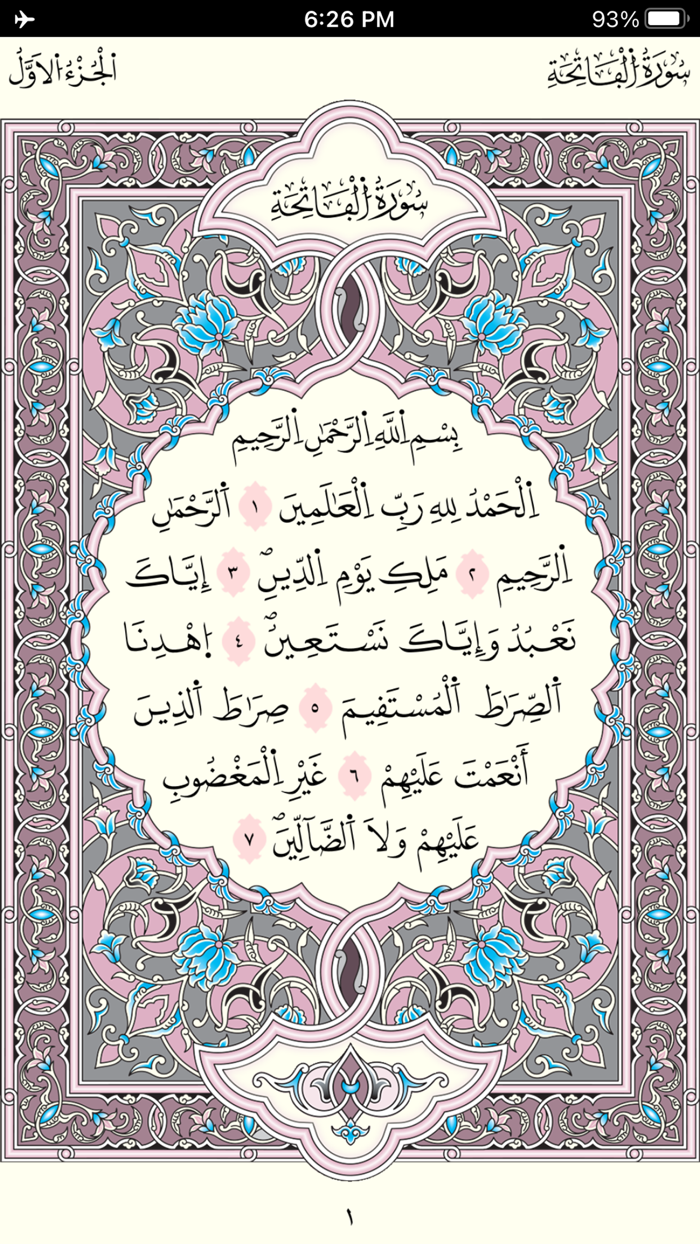 6:26 PM
93%
سُورَةُ الْفَاتِحَةِ
الْجُزْءُ الْأَوَّلُ
سُورَةُ الْفَاتِحَةِ
بِسْمِ اِ۬للَّهِ اِ۬لرَّحْمَٰنِ اِ۬لرَّحِيمِ
اِ۬لْحَمْدُ لِلهِ رَبِّ اِ۬لْعَٰلَمِينَ ١ اَ۬لرَّحْمَٰنِ
اِ۬لرَّحِيمِ ٢ مَلِكِ يَوْمِ اِ۬لدِّينِۖ ٣ إِيَّاكَ
نَعْبُدُ وَإِيَّاكَ نَسْتَعِينُۖ ٤ اُ۪هْدِنَا
اَ۬لصِّرَٰطَ اَ۬لْمُسْتَقِيمَ ٥ صِرَٰطَ اَ۬لذِينَ
أَنْعَمْتَ عَلَيْهِمْ ٦ غَيْرِ اِ۬لْمَغْضُوبِ
عَلَيْهِمْ وَلَا اَ۬لضَّآلِّينَۖ ٧
١